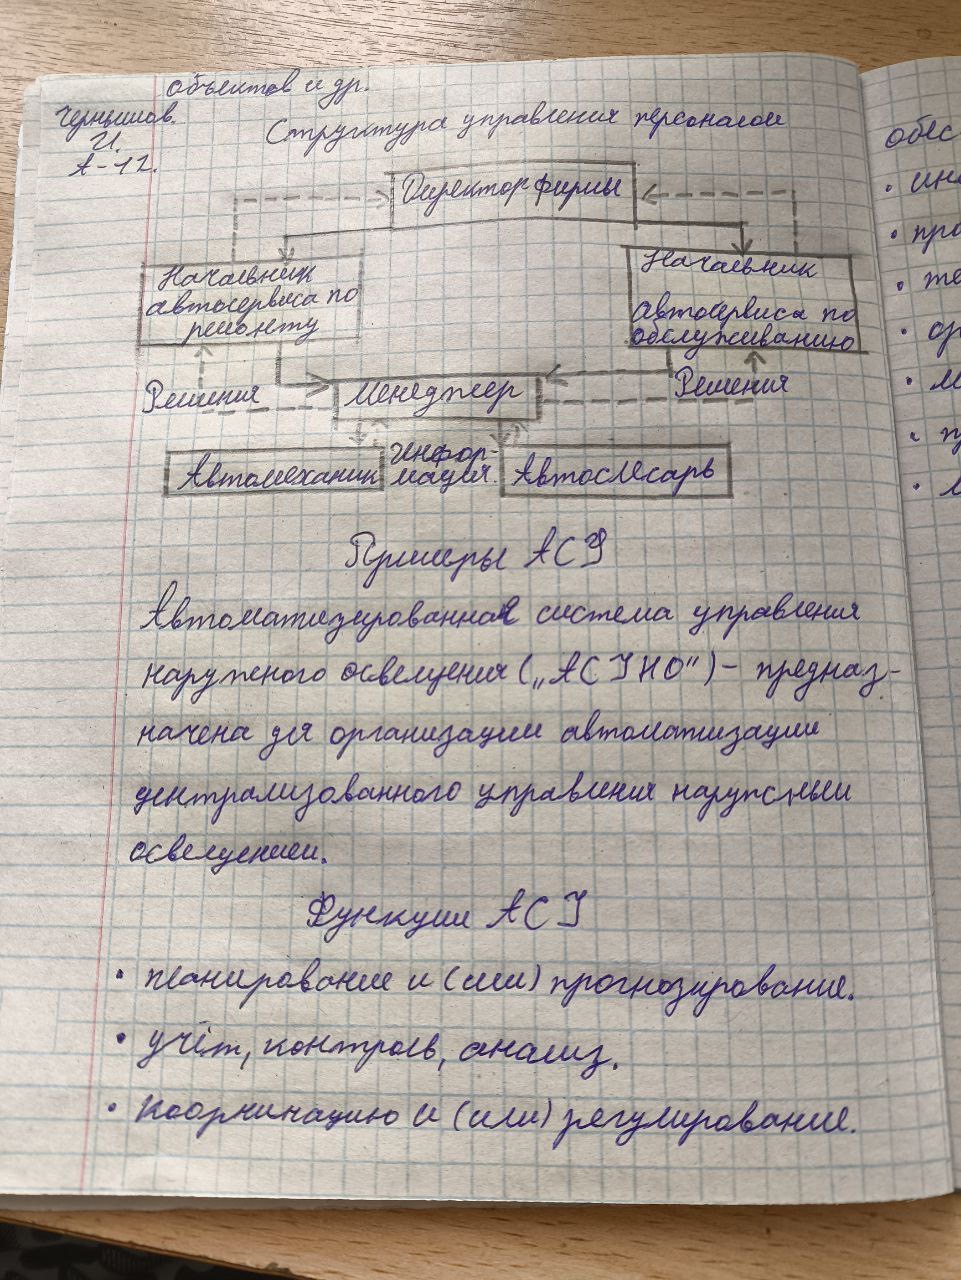 объектов и др.
Чернышов.
И.
А-12.
Структура управления персоналом
Директор фирмы
Начальник
автосервиса по
ремонту
Начальник
автосервиса по
обслуживанию
Решения
Менеджер
Решения
Автомеханик
Инфор-
мация.
Автослесарь
Примеры АСУ
Автоматизированная система управления
наружного освещения („АСУНО") - предназ-
начена для организации автоматизации
централизованного управления наружным
освещением.
Функции АСУ
• планирование и (или) прогнозирование.
• учёт, контроль, анализ.
• координацию и (или) регулирование.
обес
•
• про
•
• ор
•
•
•